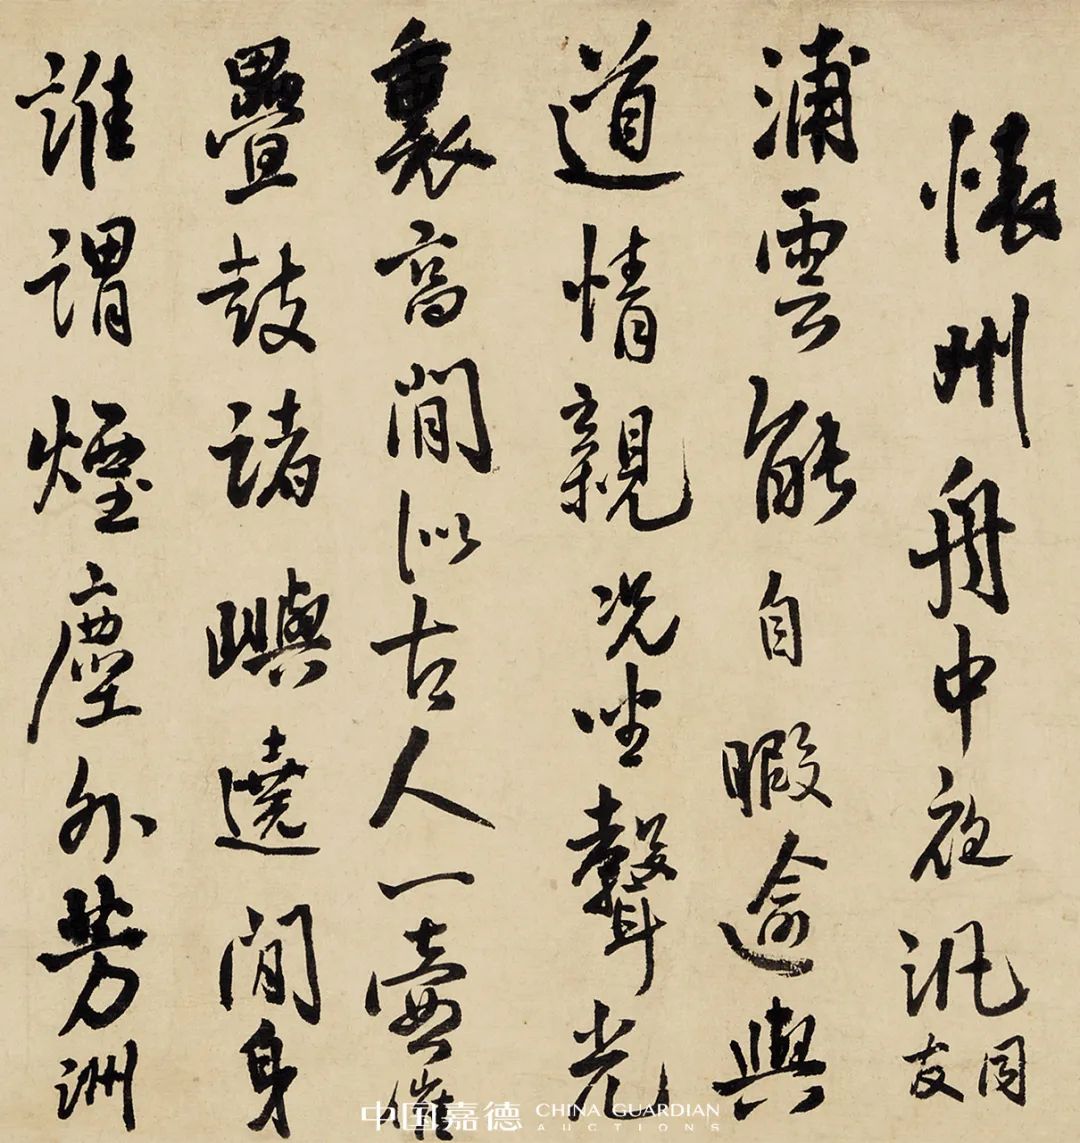 懷州舟中夜汎同友
浦雲能自暇逾與
道情親況坐聲光
裏高閒似古人一壺催
疊鼓諸嶼遶閒身
誰謂煙塵外芳洲
中国嘉德 CHINA GUARDIAN
AUCTIONS